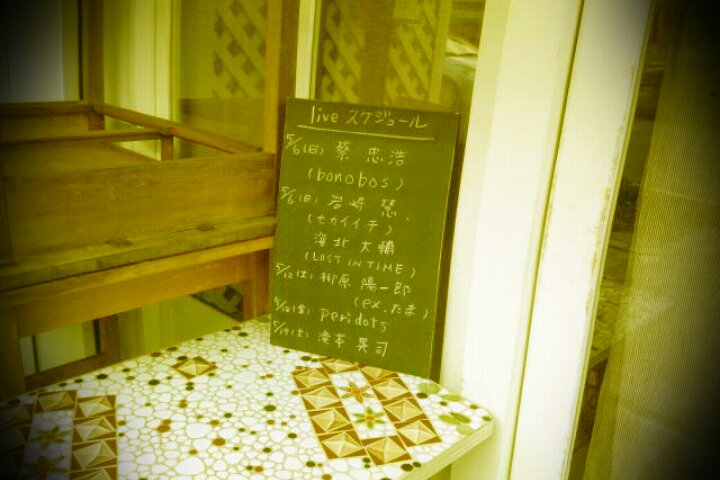 live スケジュール
5/6(日) 蔡 忠浩
(bonobos)
5/6(日) 岩崎 慧、
(セカイイチ)
海北 大輔
(LOST IN TIME)
5/12(土) 柳原 陽一郎
(ex.たま)
peridots
5/19(土) 滝本 晃司